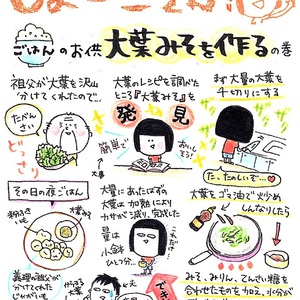 ごはんのお供 大葉みそを作るの巻
祖父が大葉を沢山
分けてくれたので…
たがんさい
どっさり
大葉のレシピを調べた
ところ『大葉みそ』を
発見
簡単そ
大事
おいしそう!
まず大量の大葉を
千切りにする
た、たのしいぞ…
その日の夜ごはん
大葉みそ
大量にあったはずの
大葉は加熱により
カサが減り、完成した
量は
小鉢
ひとつ分…
これだけ
大葉をゴマ油で炒め
しんなりしたら
義理の祖父が
分けてくれた
じゃがいも
みそ、みりん、てんさい糖を
合わせたものを加え、水分が